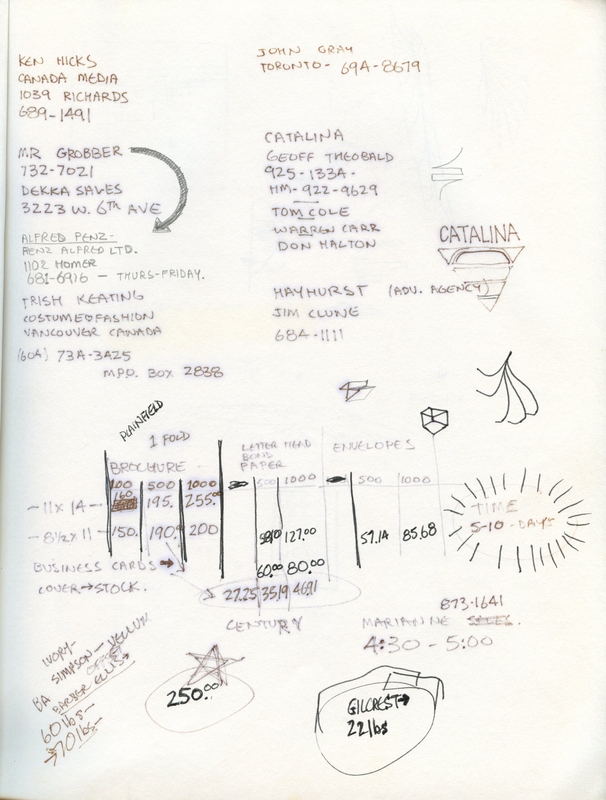 KEN HICKS
CANADA MEDIA
1039 RICHARDS
689-1491
JOHN GRAY
TORONTO - 694-8679
MR GROBBER
732-7021
DEKKA SALES
3223 W. 6TH AVE
ALFRED PENZ-
PENZ ALFRED LTD.
1102 HOMER
681-6916 - THURS-FRIDAY.
TRISH KEATING
COSTUME & FASHION
VANCOUVER CANADA
(604) 734-3425
M.P.O. BOX 2838
CATALINA
GEOFF THEOBALD
925-1334-
HM- 922-9629
TOM COLE
WARREN CARR
DON HALTON
HAYHURST (ADV. AGENCY)
JIM CLUNE
684-1111
CATALINA
PLAINFIELD
1 FOLD
BROCHURE
LETTER HEAD
BOND
PAPER
ENVELOPES
100 500 1000 500 1000 500 1000
160
- 11 x 14 - 195. 255.00
- 8 1/2 x 11 - 150. 190.00 200 127.00 57.14 85.68
BUSINESS CARDS → 60.00 80.00
COVER → STOCK. 27.25 35.19 46.91
TIME
5-10 - DAYS
CENTURY
873-1641
MARIANNE SALES.
4:30 - 5:00
IVORY-
BA SIMPSON - VELLUM
OFFSET
BARBER ELLIS →
60 lbs -
→ 70 lbs -
250.00
GILCREST →
22 lbs